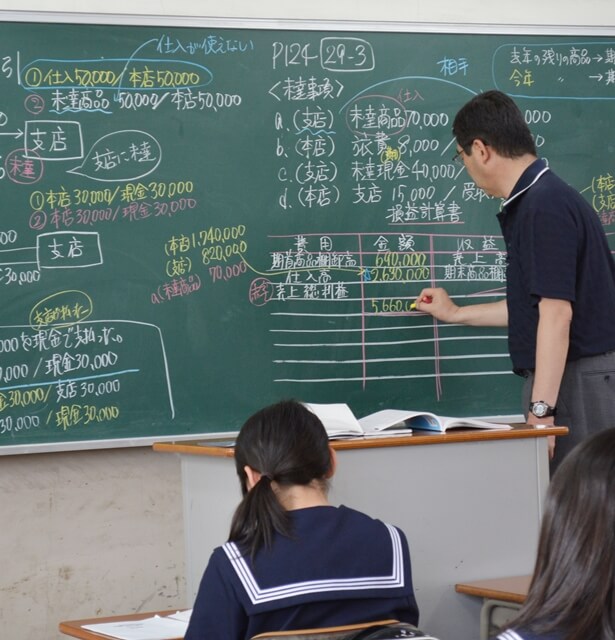 引
仕入が使えない
①仕入50,000/本店50,000
② 未達商品50,000/本店50,000
支店
未達
支店に未達
① 本店30,000/現金30,000
② 本店30,000/現金30,000
支店
30,000
を現金で支払った。
/現金30,000
30,000/支店30,000
/現金30,000
P124- 29-3
相手
<未達事項>
仕入
a. (支店) 未達商品70,000
b. (本店) 旅費 8,000/
c. (支店) 未達現金40,000/
d. (本店) 支店 15,000/受取
損益計算書
(本店) 1,740,000
(支店) 820,000
a(未達商品) 70,000
費用 金額 収益
期首商品棚卸高 690,000 売上高
仕入高 2,630,000 期末商品棚卸
売上総利益
5,660,0
去年の残りの商品→期
今年 〃 →期